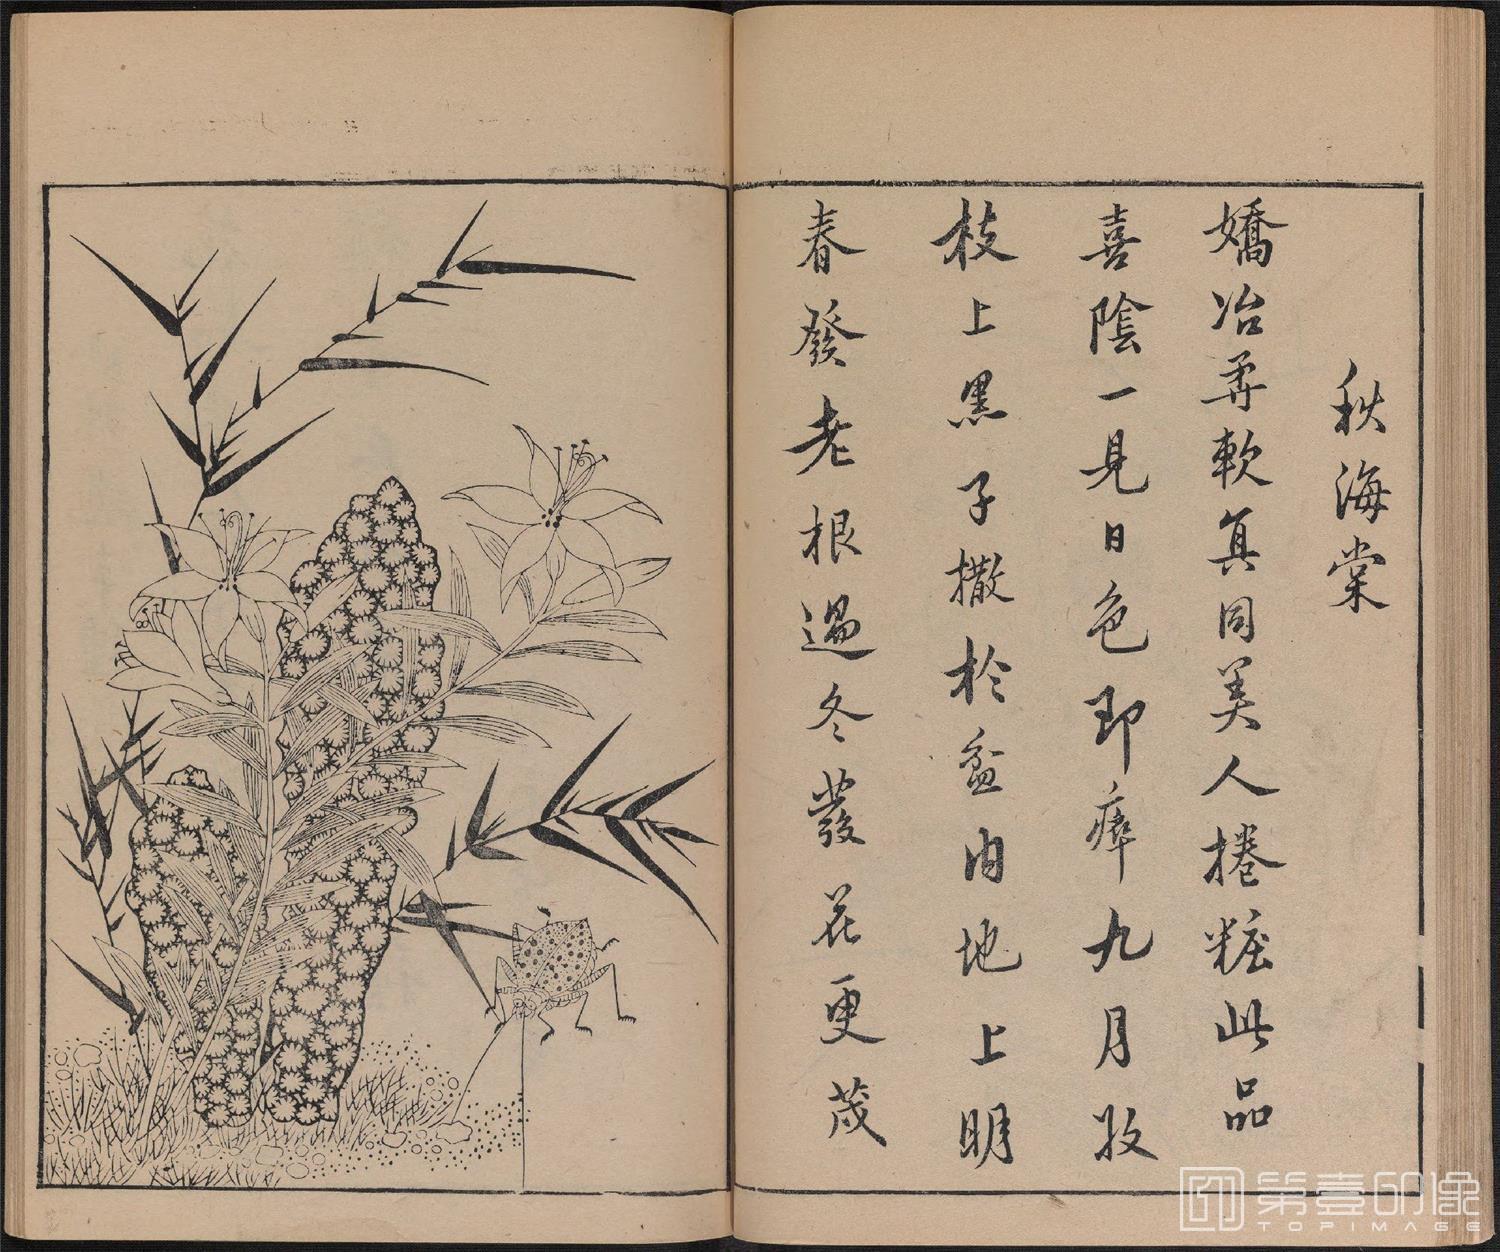 秋海棠
嬌冶柔軟真同美人捲粧此品
喜陰一見日色即瘁九月收
枝上黑子撒於盆内地上明
春發老根過冬發花更茂
第壹印像
TOPIMAGE